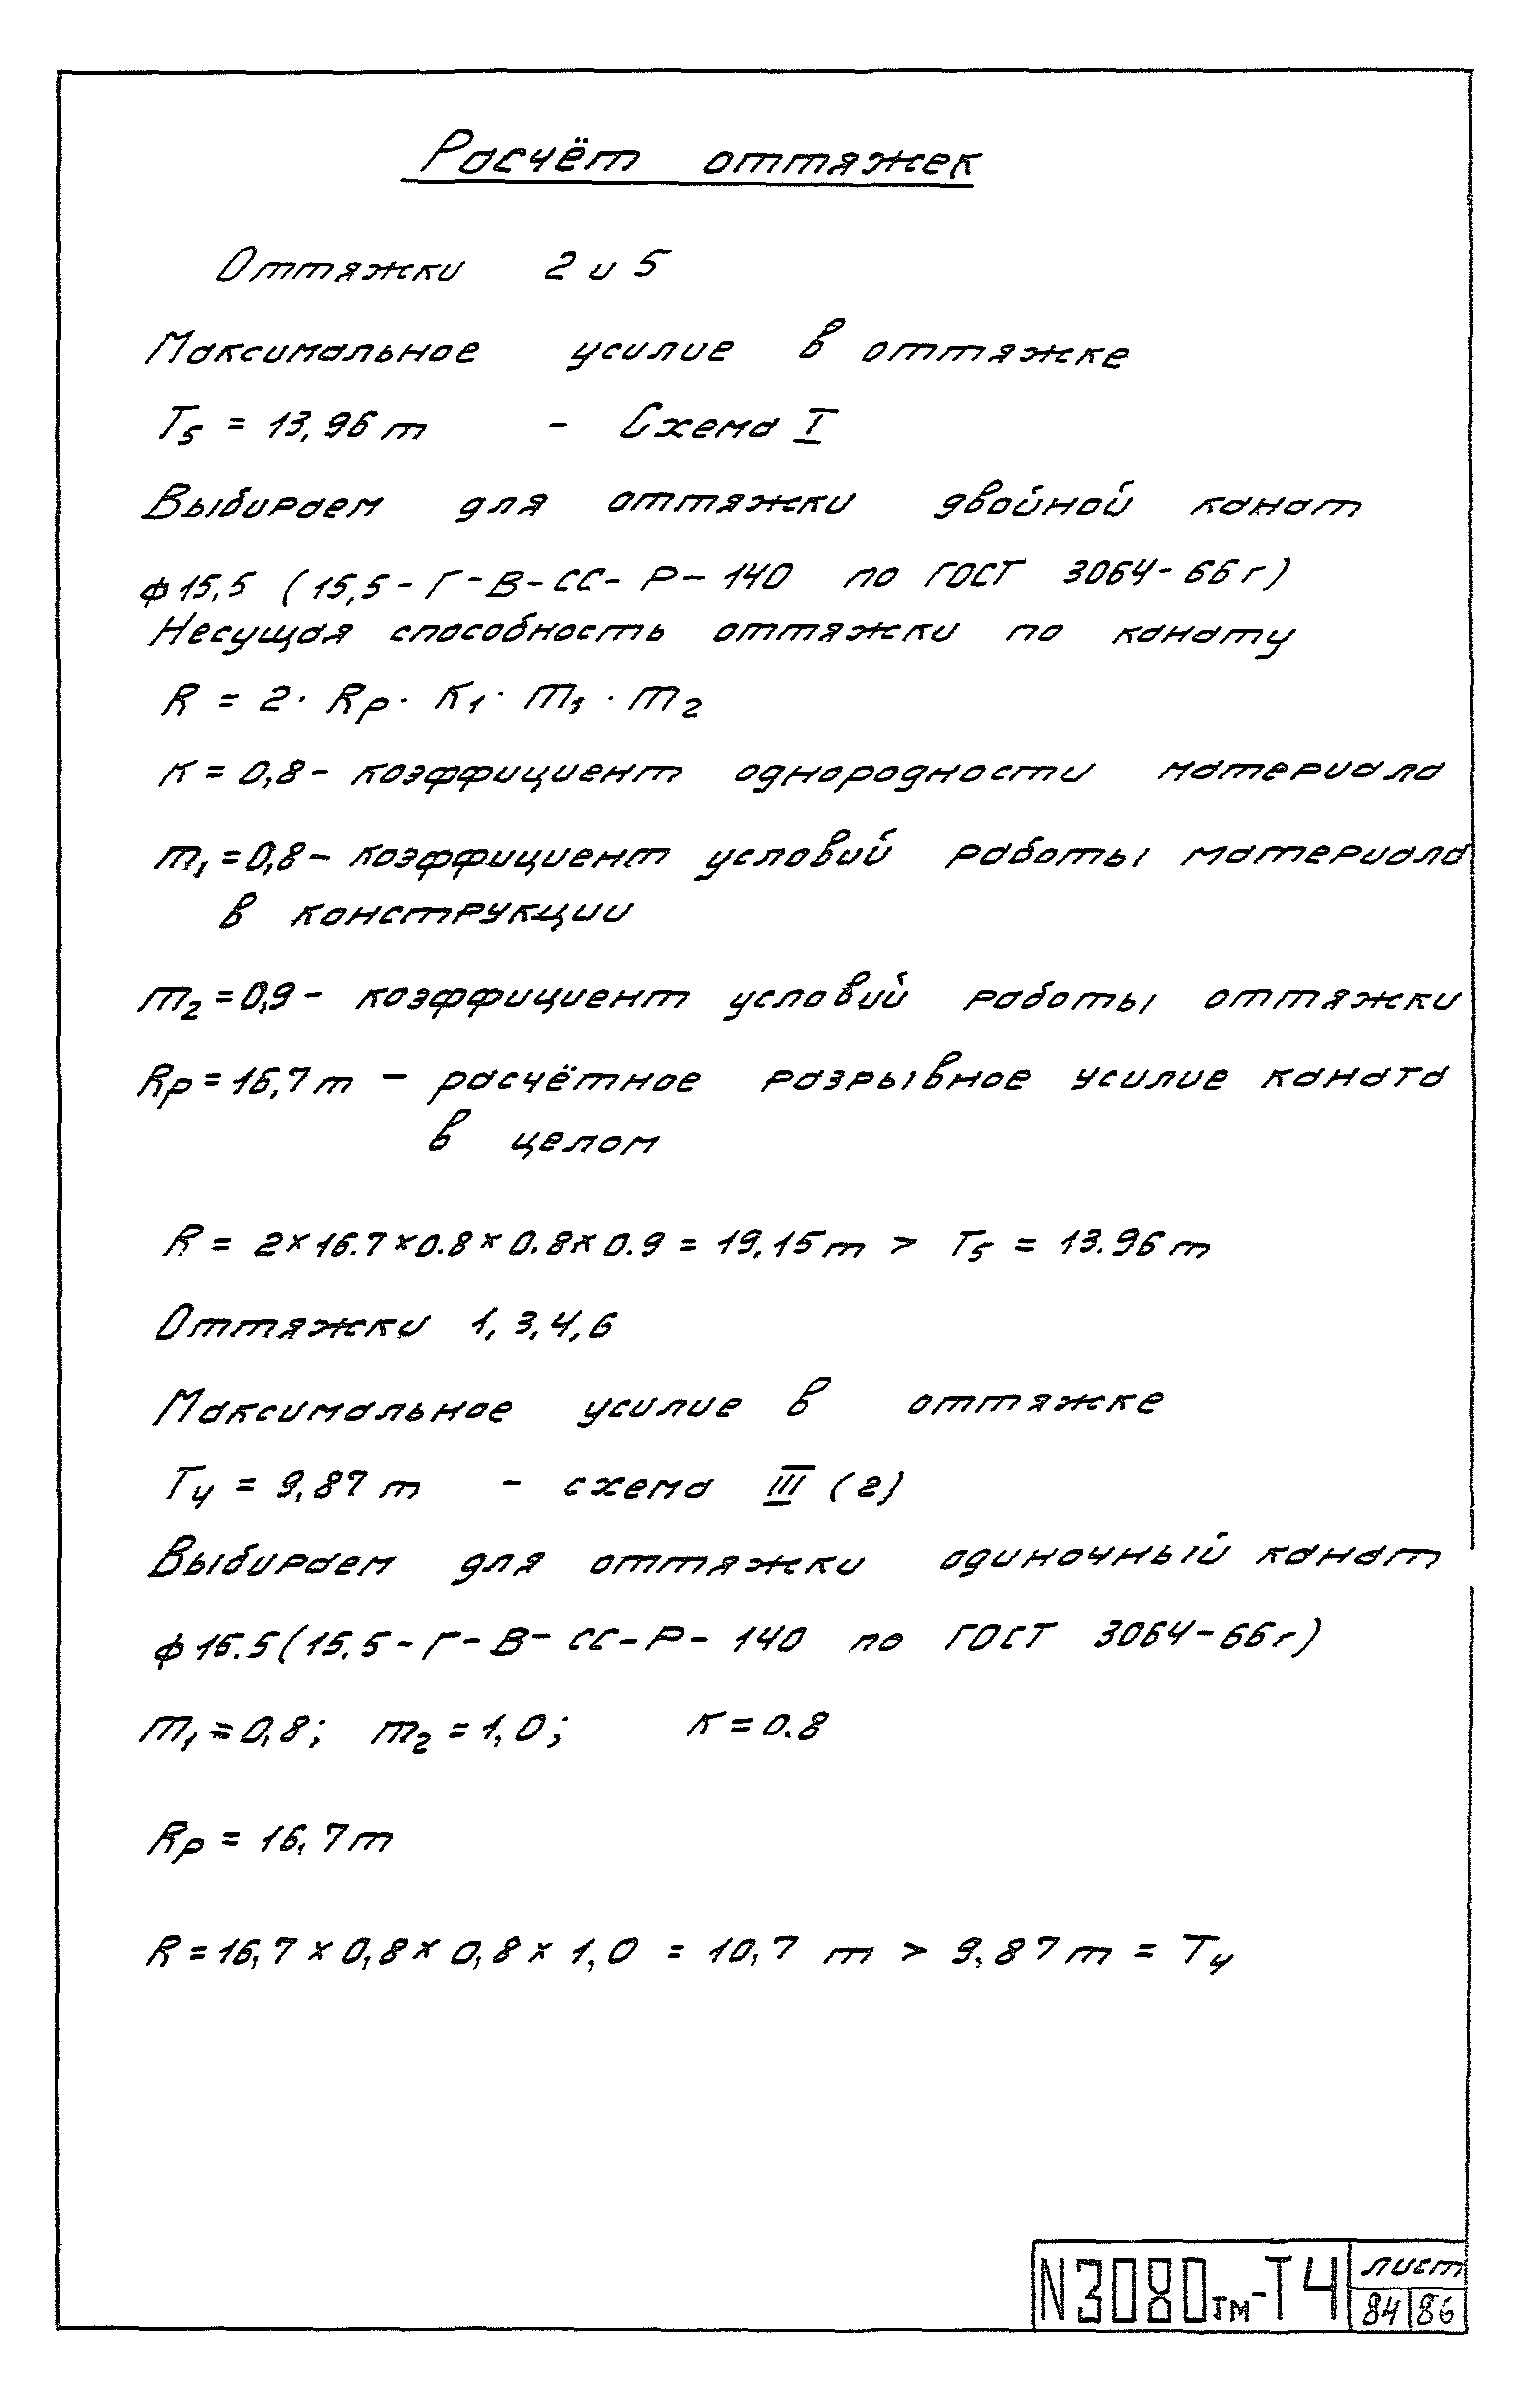 Расчёт оттяжек
Оттяжки 2 и 5
Максимальное усилие в оттяжке
T₅ = 13,96 т - Схема I
Выбираем для оттяжки двойной канат
ф 15,5 (15,5 - Г - В - СС - Р - 140 по ГОСТ 3064-66г)
Несущая способность оттяжки по канату
R = 2 · Rр · K₁ · m₁ · m₂
К = 0,8 - коэффициент однородности материала
m₁ = 0,8 - коэффициент условий работы материала
в конструкции
m₂ = 0,9 - коэффициент условий работы оттяжки
Rр = 16,7 т - расчётное разрывное усилие каната
в целом
R = 2×16.7×0.8×0.8×0.9 = 19,15 т > T₅ = 13.96 т
Оттяжки 1, 3, 4, 6
Максимальное усилие в оттяжке
T₄ = 9,87 т - схема III (г)
Выбираем для оттяжки одиночный канат
ф 15.5 (15.5 - Г - В - СС - Р - 140 по ГОСТ 3064-66г)
m₁ = 0,8; m₂ = 1,0; К = 0.8
Rр = 16,7 т
R = 16,7 × 0,8 × 0,8 × 1,0 = 10,7 т > 9,87 т = T₄
N3080тм-Т4 лист
84 86